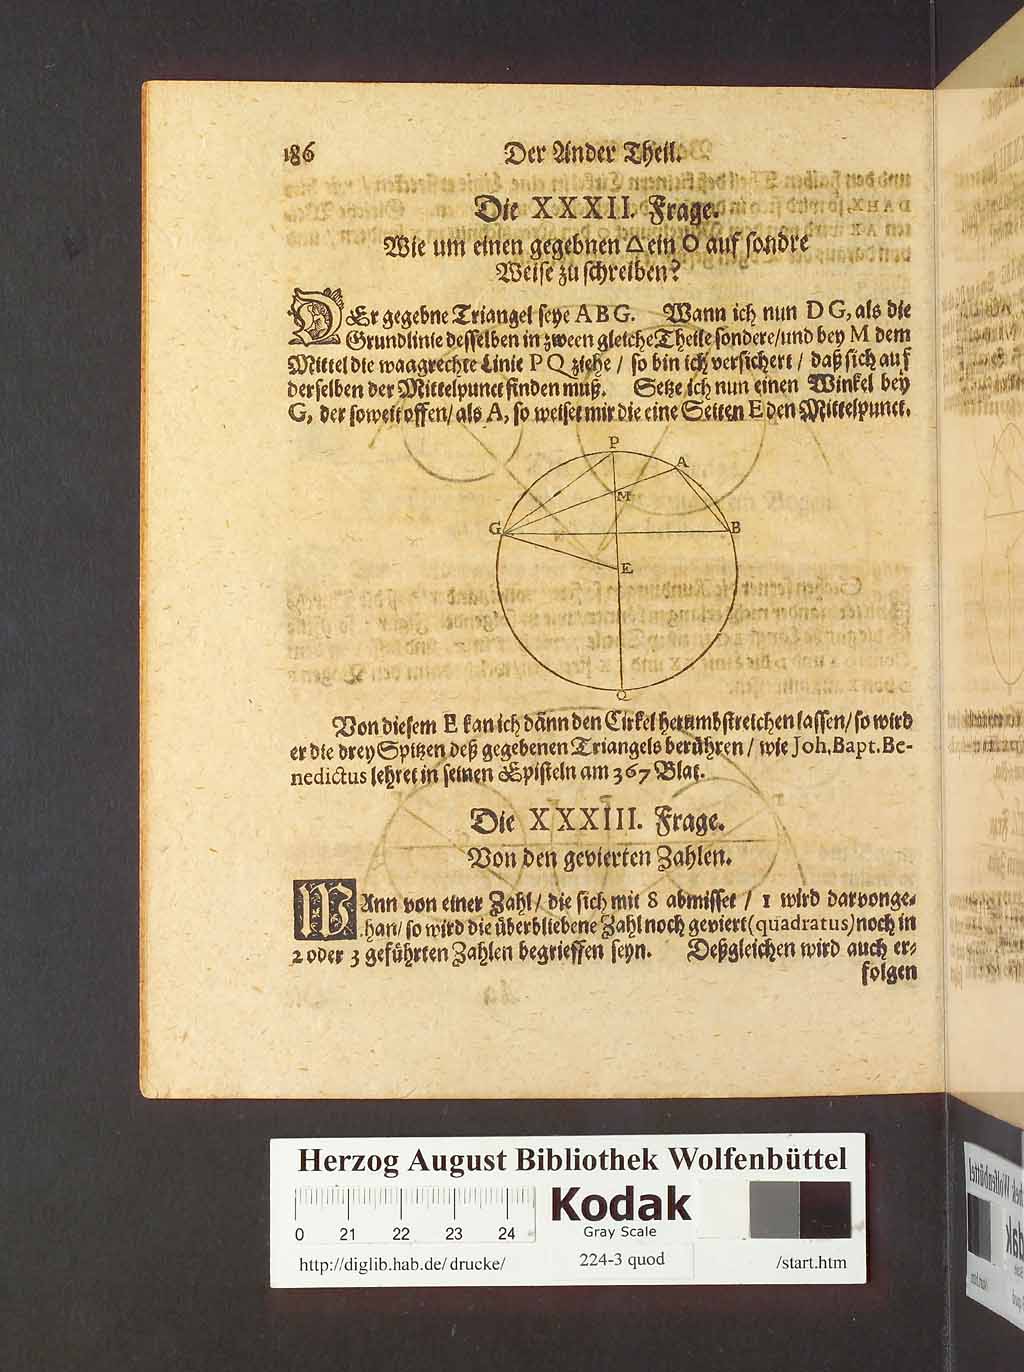 186 Der Ander Theil.
Die XXXII. Frage.
Wie um einen gegebnen △ ein O auf sondre
Weise zu schreiben?
DEr gegebne Triangel seye A B G. Wann ich nun D G, als die
Grundlinie desselben in zween gleiche Theile sondere/und bey M dem
Mittel die waagrechte Linie P Q ziehe / so bin ich versichert / daß sich auf
derselben der Mittelpunct finden muß. Setze ich nun einen Winkel bey
G, der soweit offen/ als A, so weiset mir die eine Seiten E den Mittelpunct.
P
A
M
G
B
E
Q
Von diesem E kan ich dänn den Cirkel herumbstreichen lassen/ so wird
er die drey Spitzen deß gegebenen Triangels berühren / wie Joh. Bapt. Be-
nedictus lehret in seinen Episteln am 367 Blat.
Die XXXIII. Frage.
Von den gevierten Zahlen.
WAnn von einer Zahl/ die sich mit 8 abmisset / 1 wird darvonge-
han/ so wird die überbliebene Zahl noch geviert (quadratus) noch in
2 oder 3 geführten Zahlen begrieffen seyn. Deßgleichen wird auch er-
folgen
Herzog August Bibliothek Wolfenbüttel
0 21 22 23 24
Kodak
Gray Scale
http://diglib.hab.de/drucke/ 224-3 quod /start.htm